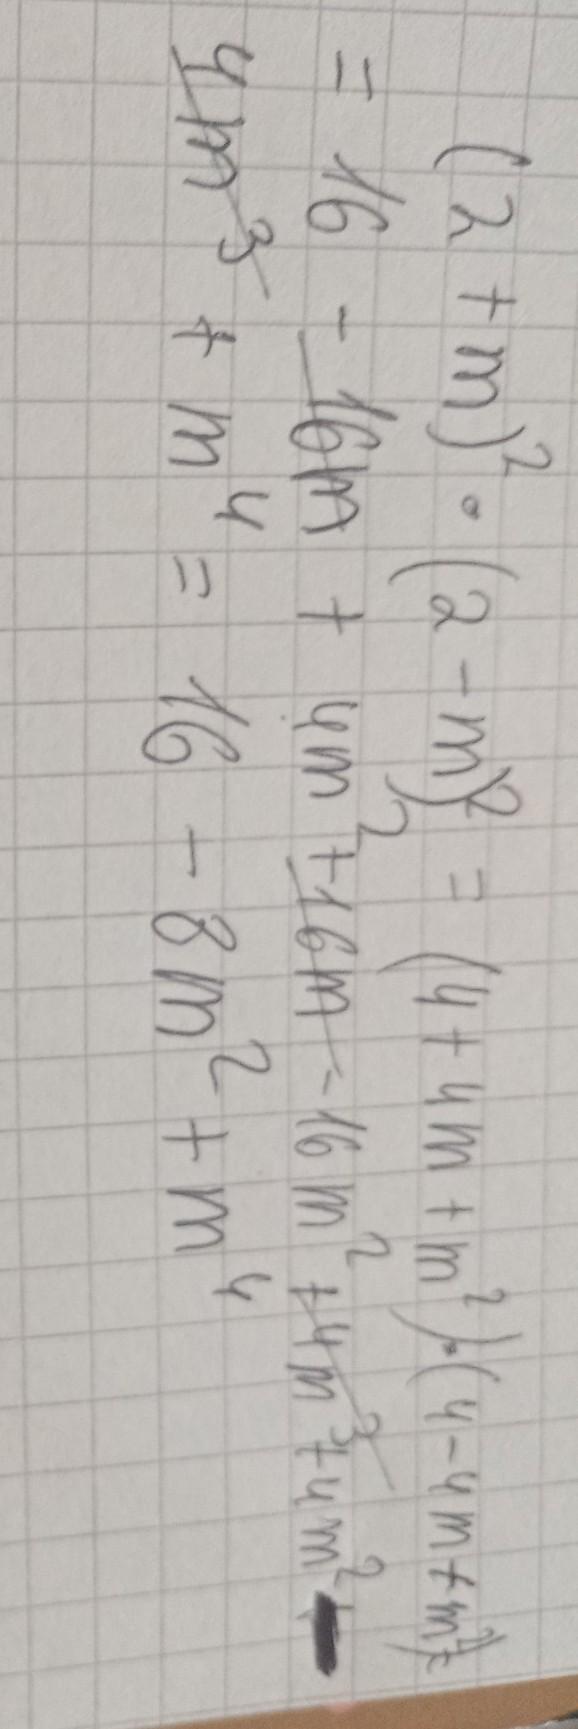 (2 + m)² · (2 - m)² = (4 + 4m + m²)·(4 - 4m + m²)=
= 16 - 16m + 4m² + 16m - 16m² + 4m³ + 4m² -
4m³ + m⁴ = 16 - 8m² + m⁴